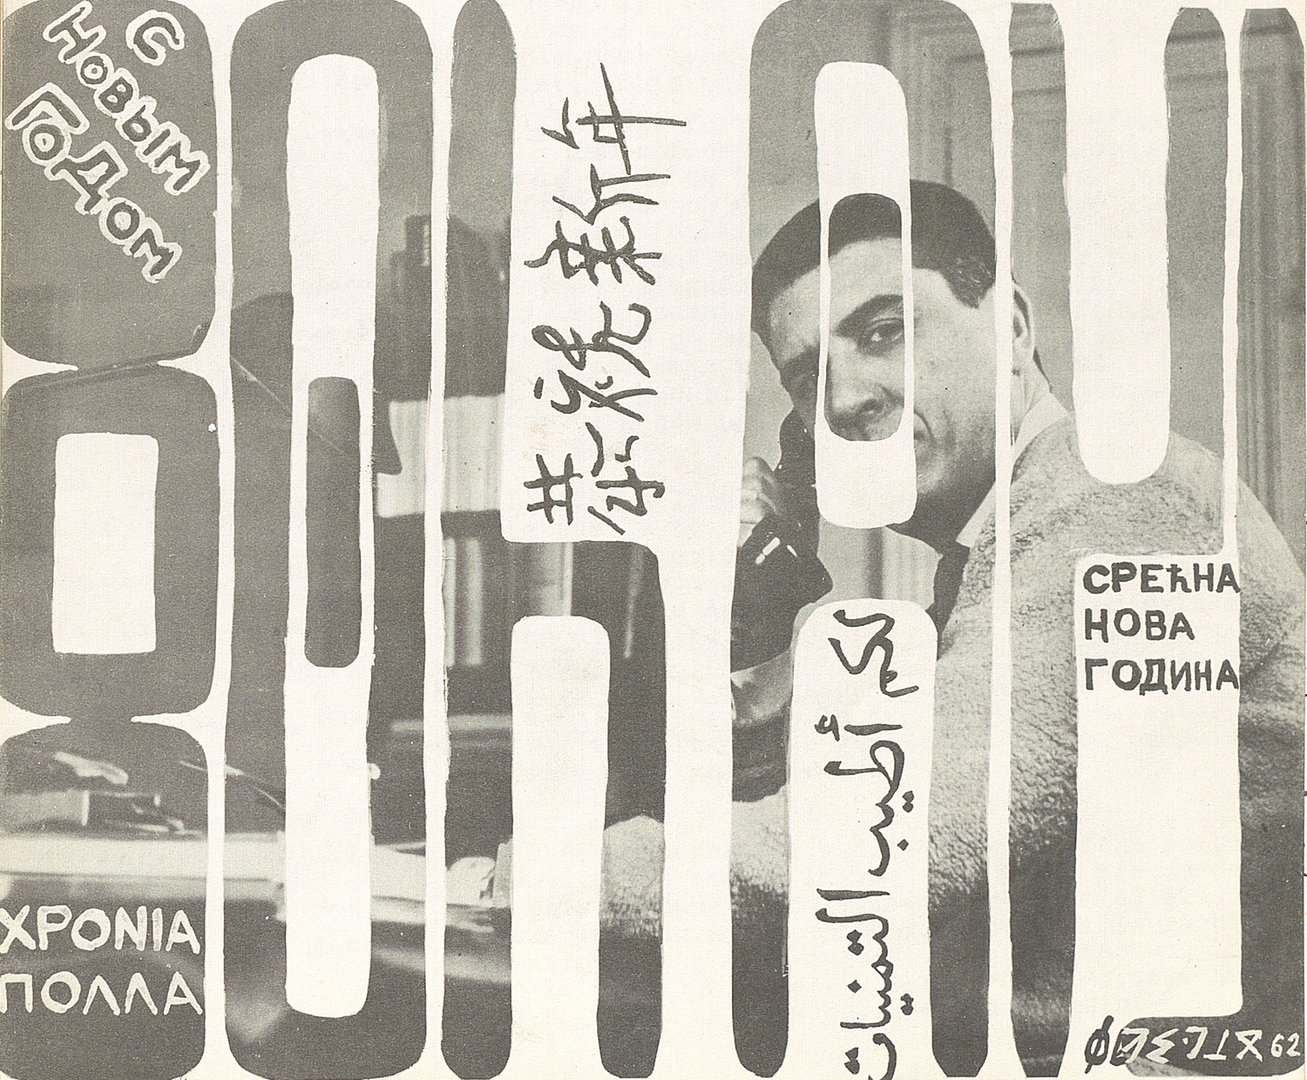 С
НОВЫМ
ГОДОМ
恭祝新年
لكم أطيب التمنيات
СРЕЋНА
НОВА
ГОДИНА
ΧΡΟΝΙΑ
ΠΟΛΛΑ
62